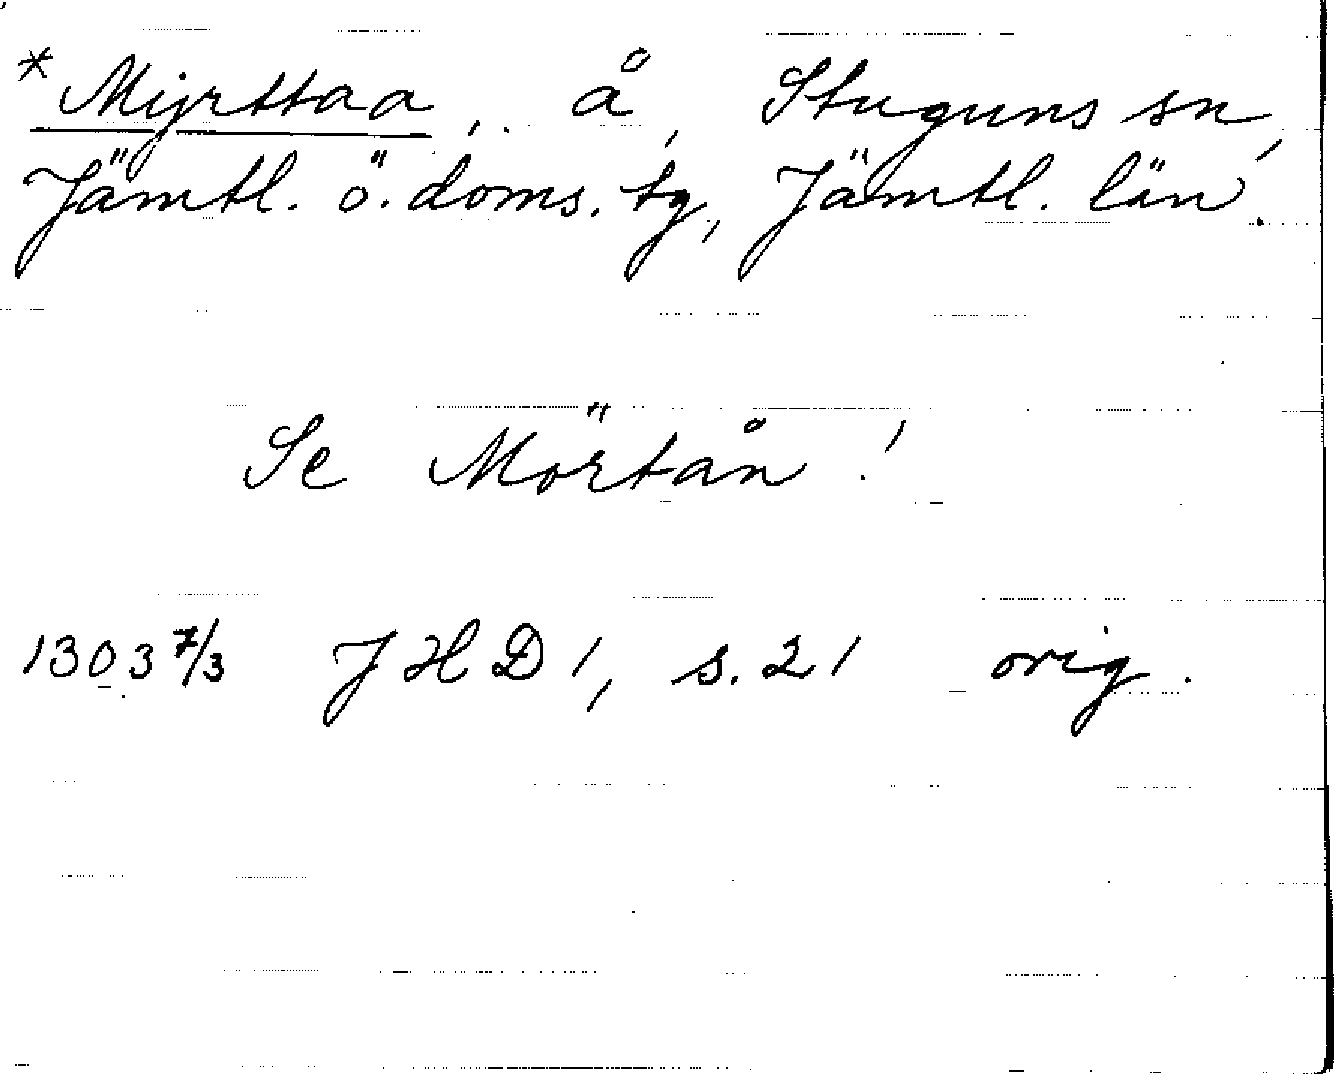 *Myrttaa, å, Stuguns sn,
Jämtl. ö. doms. tg, Jämtl. län.
Se Mörtån!
1303 7/3 JHD 1, s. 21 orig.